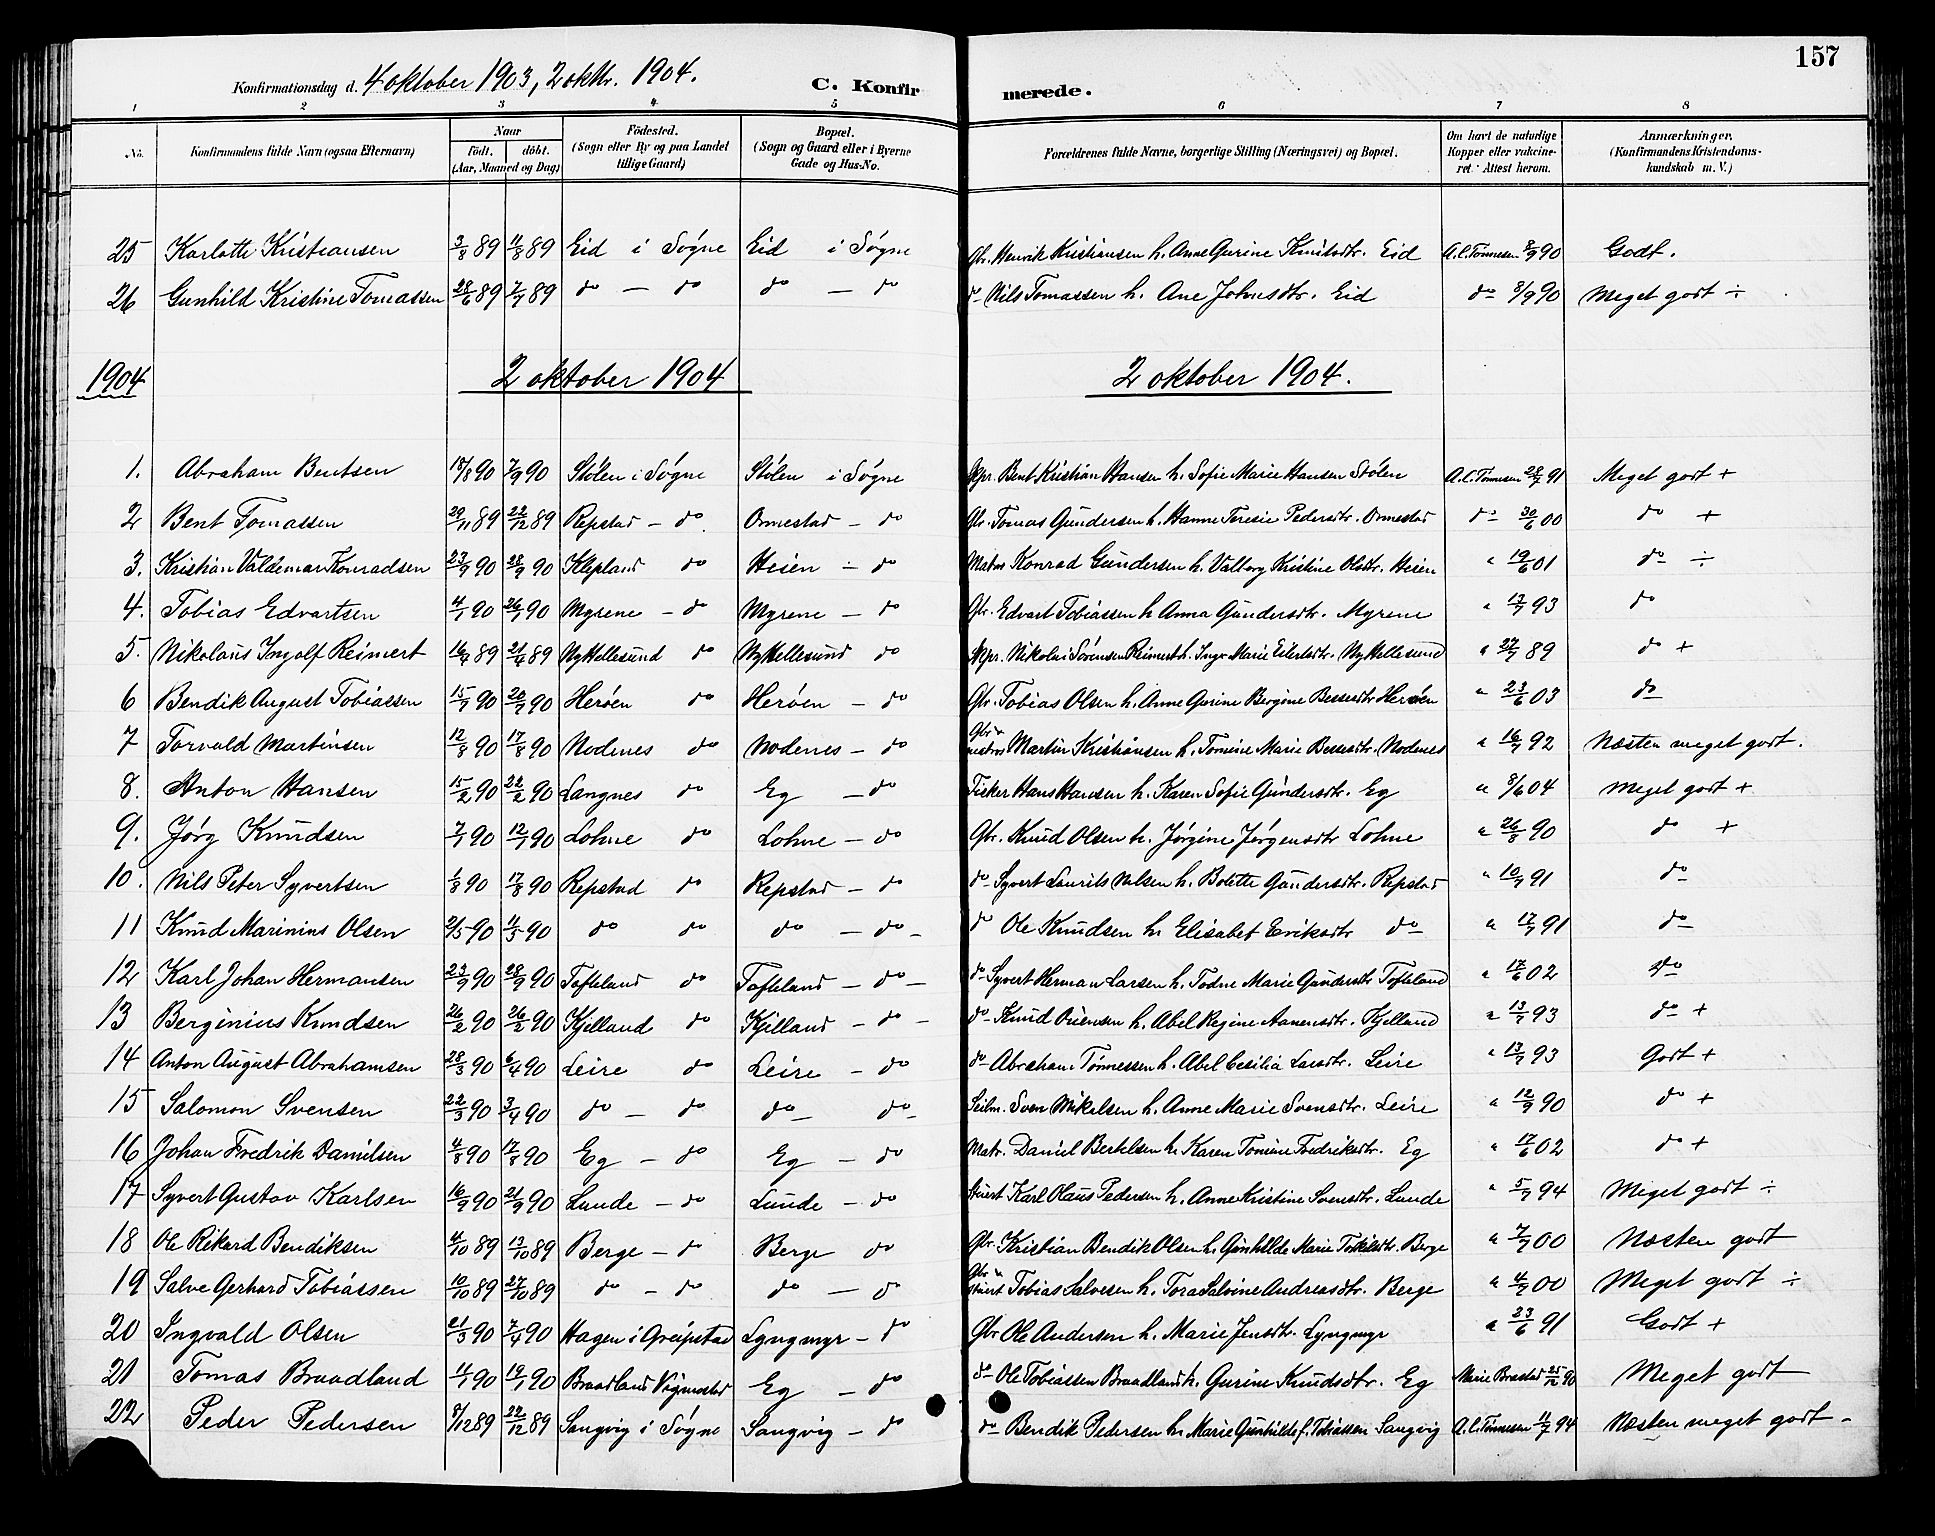 157
Konfirmationsdag d. 4 oktober 1903, 2 oktbr. 1904. C. Konfirmerede.
1 2 3 4 5 6 7 8
No. Konfirmandens fulde Navn (ogsaa Efternavn) Naar födt. döbt. (Aar, Maaned og Dag) Födested. (Sogn eller By og paa Landet tillige Gaard) Bopæl. (Sogn og Gaard eller i Byerne Gade og Hus-No. Forældrenes fulde Navne, borgerlige Stilling (Næringsvei) og Bopæl. Om havt de naturlige Kopper eller vakcineret: Attest herom. Anmærkninger. (Konfirmandens Kristendomskundskab m. V.)
25 Karlotte Kristiansen 3/8 89 11/8 89 Eid i Søgne Eid i Søgne Gbr. Henrik Kristiansen h. Anne Gurine Knudsdtr. Eid A.C. Tønnesen 8/9 90 Godt.
26 Gunhild Kristine Tomassen 28/6 89 7/7 89 do — do do — do do Nils Tomassen h. Ane Johnsdtr. Eid do 8/9 90 Meget godt ÷
1904 2 oktober 1904 2 oktober 1904.
1. Abraham Bentsen 18/8 90 7/9 90 Stølen i Søgne Stølen i Søgne Skpr. Bent Kristian Hansen h. Sofie Marie Hansen Stølen A.C. Tønnesen 28/7 91 Meget godt +
2 Bent Tomassen 29/11 89 22/12 89 Repstad — do Ormestad — do Gbr. Tomas Gundersen h. Hanne Teresie Pedersdtr. Ormestad do 30/6 00 do +
3. Kristian Valdemar Konradsen 23/9 90 28/9 90 Klepland do Heien — do Matros Konrad Gundersen h. Valborg Kristine Olsdtr. Heien " 19/6 01 do ÷
4. Tobias Edvartsen 4/1 90 26/1 90 Myrene — do Myrene — do Gbr. Edvart Tobiassen h Anna Gundersdtr. Myrene " 13/7 93 do
5. Nikolaus Ingolf Reinert 16/4 89 21/4 89 Ny Hellesund do Ny Hellesund do Skpr. Nikolai Sørensen Reinert h. Inger Marie Eilertsdtr. Ny Hellesund " 27/7 89 do +
6 Bendik August Tobiassen 15/7 90 20/7 90 Herøen do Herøen — do Gbr. Tobias Olsen h. Anne Gurine Bergine Bessesdtr Herøen " 23/6 03 do
7 Torvald Martinsen 12/8 90 17/8 90 Nodenes do Nodenes — do Gbr & matros Martin Kristiansen h. Tomine Marie Bessesdtr. Nodenes " 16/7 92 Næsten meget godt.
8. Anton Hansen 15/2 90 22/2 90 Langnes do Eg — do Fisker Hans Hansen h. Karen Sofie Gundersdtr. Eg " 8/6 04 Meget godt +
9. Jørg Knudsen 7/1 90 12/1 90 Lohne do Lohne — do Gbr. Knud Olsen h. Jørgine Jørgensdtr Lohne " 26/8 90 do +
10. Nils Peter Syvertsen 1/8 90 17/8 90 Repstad do Repstad — do do Syvert Laurits Nilsen h. Bolette Gundersdtr. Repstad " 10/7 91 do
11 Knud Marinius Olsen 2/5 90 11/5 90 do do do — do do Ole Knudsen h. Elisabet Eriksdtr do " 17/7 91 do
12 Karl Johan Hermansen 23/9 90 28/9 90 Tofteland do Tofteland — do do Syvert Herman Larsen h. Todne Marie Gundersdtr Tofteland " 17/6 02 do
13 Berginius Knudsen 26/2 90 26/2 90 Kjelland do Kjelland — do do Knud Oriensen h. Abel Regine Aanensdtr. Kjelland " 13/7 93 do +
14 Anton August Abrahamsen 28/3 90 6/4 90 Leire do Leire — do do Abraham Tønnessen h. Abel Cesilia Larsdtr. Leire " 13/7 93 Godt +
15 Salomon Svensen 22/3 90 3/4 90 do — do do do Seilm. Sven Mikelsen h. Anne Marie Svensdtr. Leire " 12/9 90 do +
16 Johan Fredrik Danilsen 4/8 90 17/8 90 Eg — do Eg — do Matr. Daniel Bertelsen h. Karen Tomine Fredriksdtr. Eg " 17/6 02 do +
17 Syvert Gustav Karlsen 16/9 90 21/9 90 Lunde — do Lunde — do Stuert Karl Olaus Pedersen h. Anne Kristine Svensdtr. Lunde " 5/7 94 Meget godt ÷
18 Ole Rikard Bendiksen 4/10 89 13/10 89 Berge — do Berge do Gbr. Kristian Bendik Olsen h. Gunhilde Marie Torkilsdtr. Berge " 7/7 00 Næsten godt
19 Salve Gerhard Tobiassen 10/10 89 27/10 89 do — do do — do Gbr & stuert Tobias Salvesen h. Tora Salvine Andreasdtr. Berge " 4/7 00 Meget godt ÷
20 Ingvald Olsen 21/3 90 7/4 90 Hagen i Greipstad Lyngmyr — do Gbr Ole Andersen h. Marie Jensdtr. Lyngmyr " 23/6 91 Godt +
21 Tomas Braadland 11/1 90 19/1 90 Braadland Vigmostad Eg — do do Ole Tobiassen Braadland h. Gurine Knudsdtr. Eg Marie Brastad 25/12 90 Meget godt
22 Peder Pedersen 8/12 89 22/12 89 Sangvig i Søgne Sangvig — do do Bendik Pedersen h. Marie Gunhilde f. Tobiassen Sangvig A.C. Tønnesen 11/7 94 Næsten meget godt —